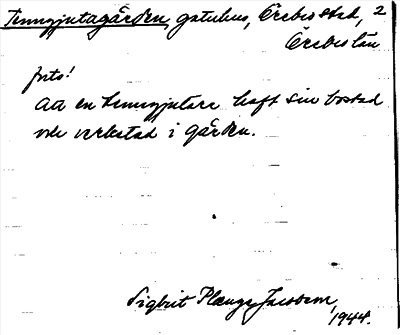 Tenngjutagården, gatuhus, Örebro stad, 2
Örebro län
foto!
aa en tenngjutare haft sin bostad
och verkstad i gården.
Sigbrit Plænge Jacobson,
1944.